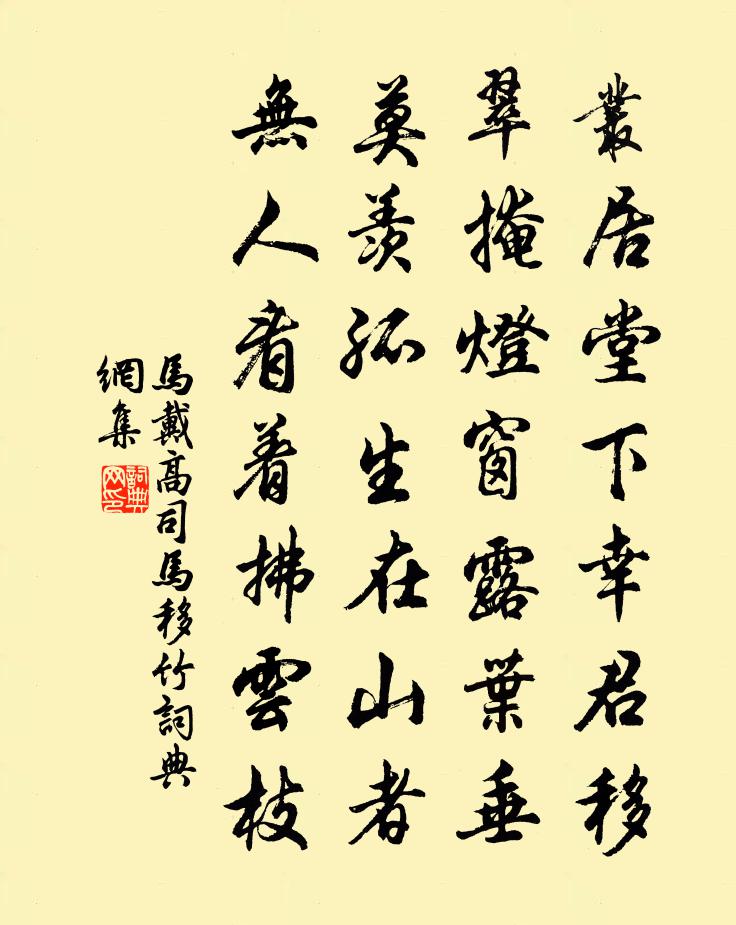 叢居堂下幸君移
翠掩燈窗露葉垂
莫羨孤生在山者
無人看着拂雲枝
馬戴高司馬移竹詞典
網集
詞典
网印